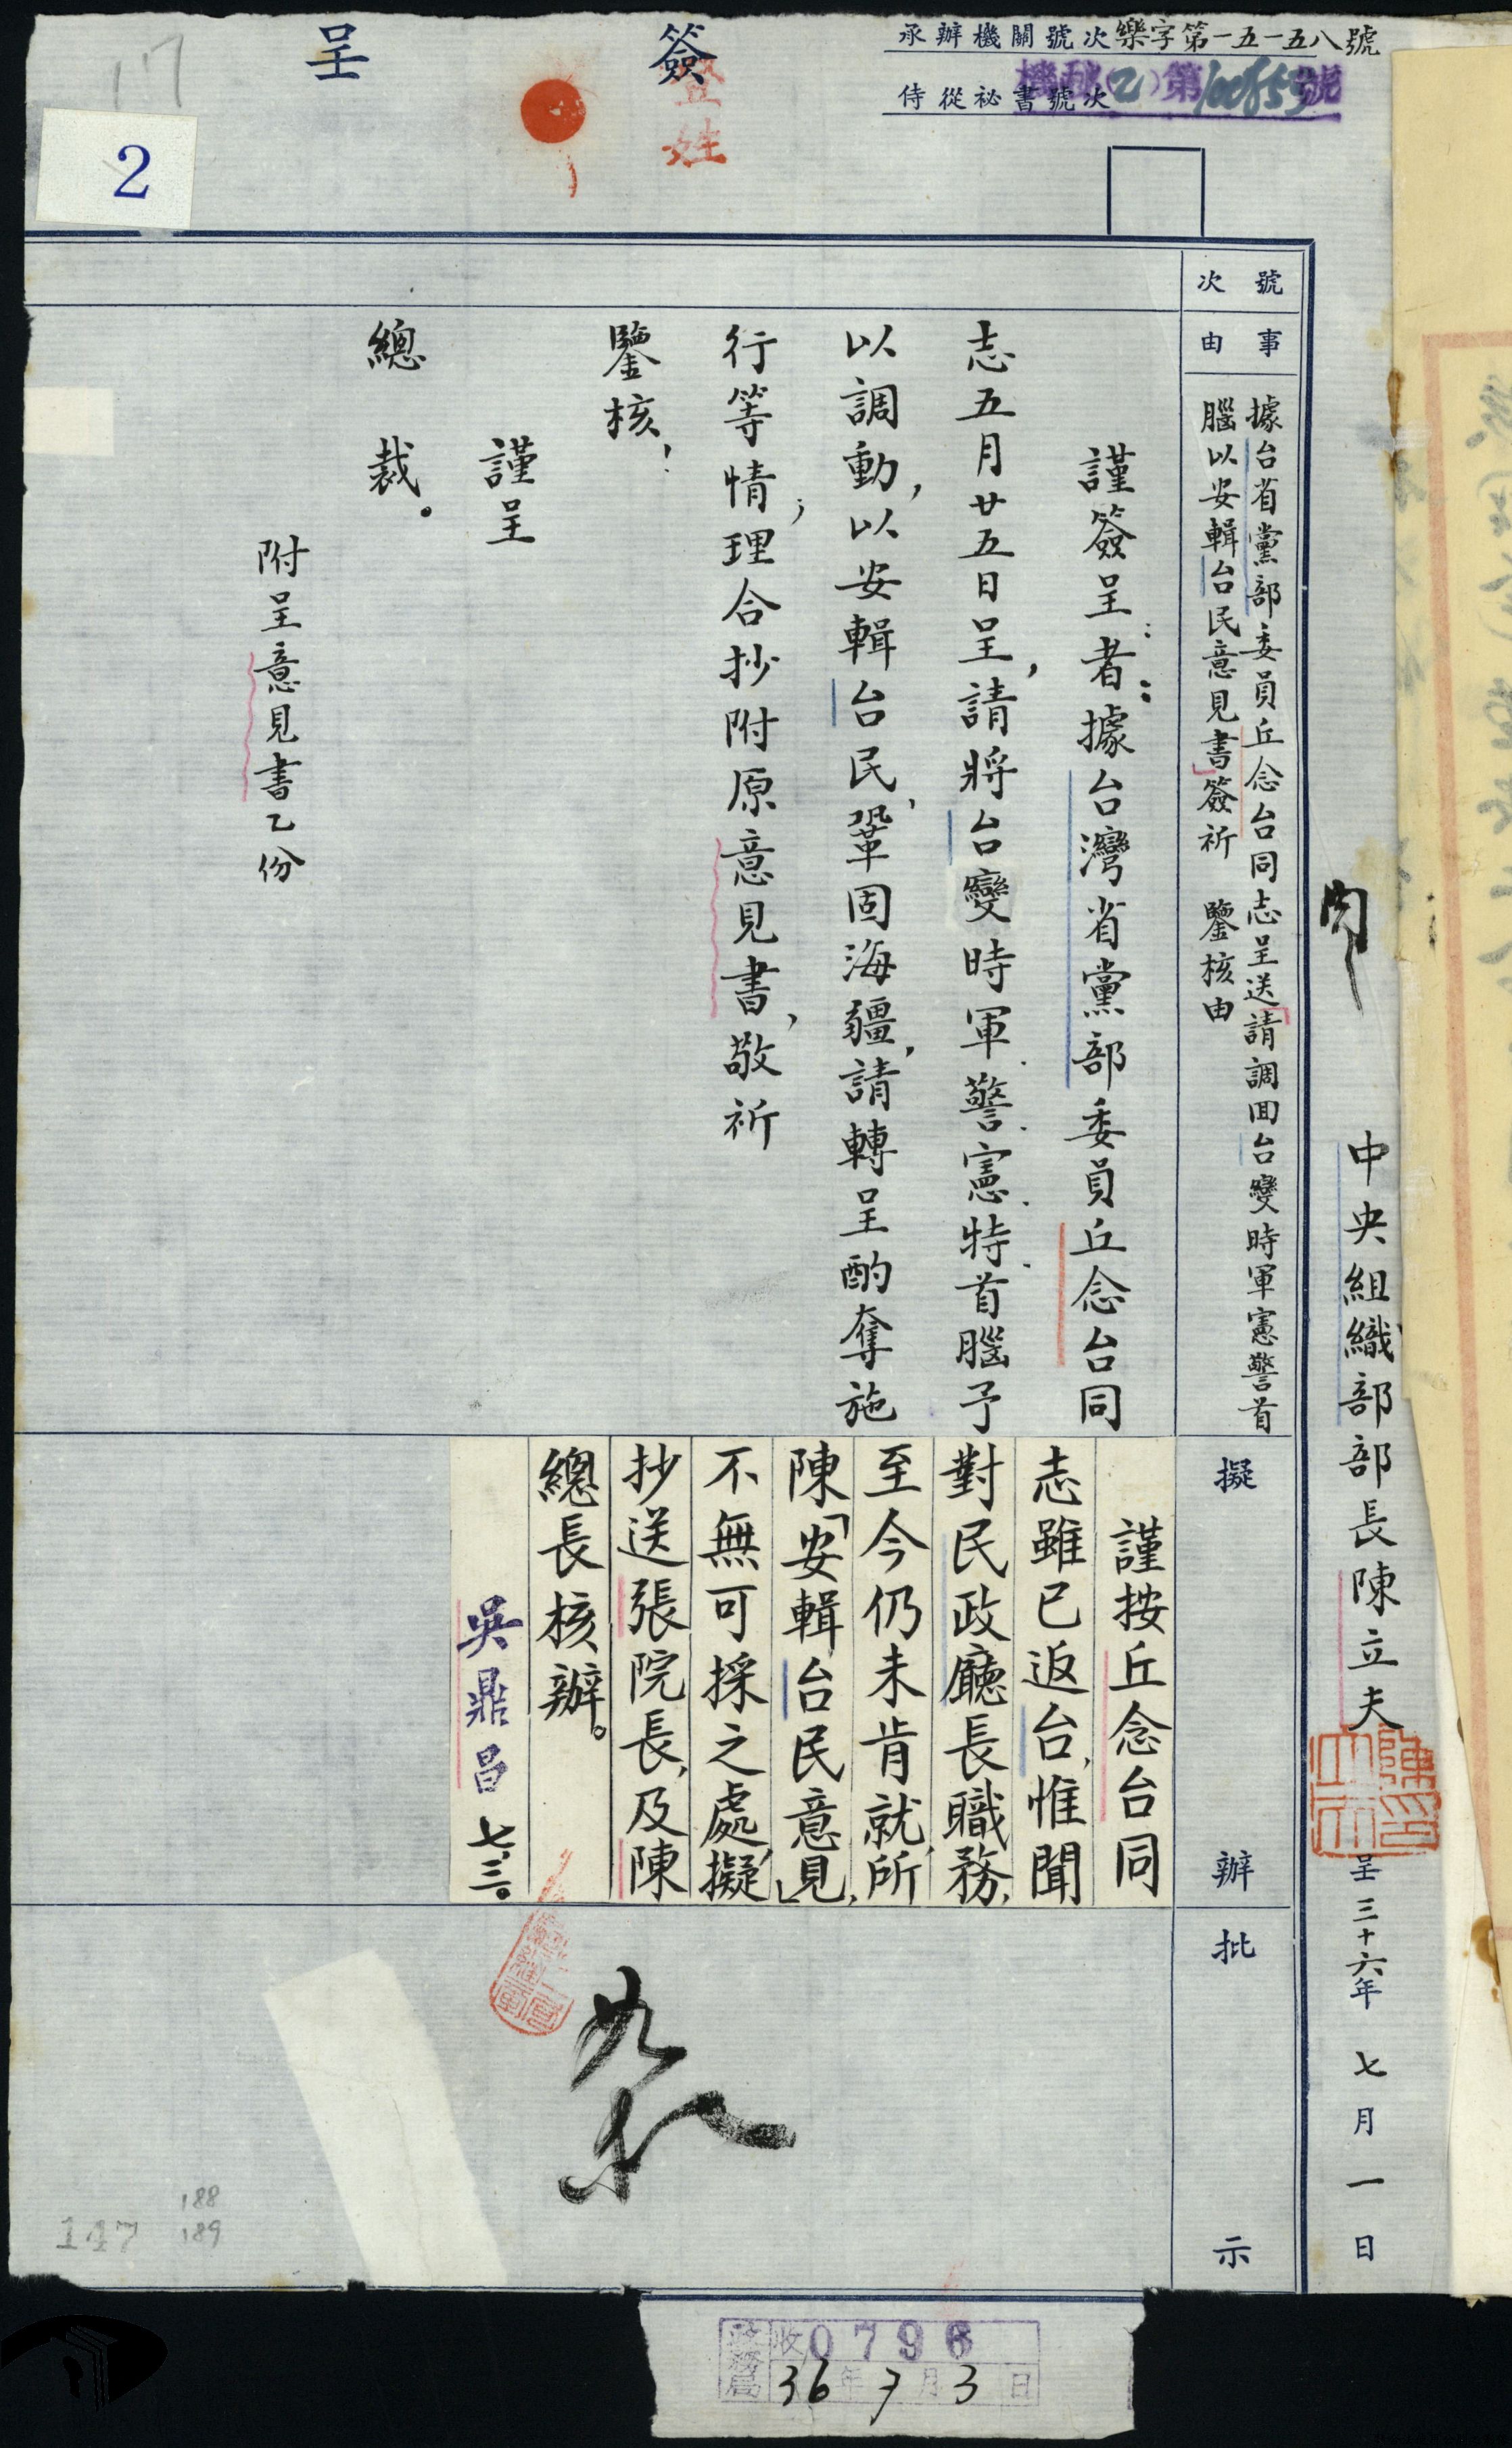 簽呈
承辦機關號次樂字第一五一五八號
侍從祕書號次機秘(乙)第100853號
2
17
閱
中央組織部部長陳立夫呈三十六年七月一日
號次
事由
據台省黨部委員丘念台同志呈送「請調回台變時軍憲警首
腦以安輯台民意見書」簽祈 鑒核由
謹簽呈者:據台灣省黨部委員丘念台同
志五月廿五日呈,請將台變時軍、警、憲、特、首腦予
以調動,以安輯台民,鞏固海疆,請轉呈酌奪施
行等情;理合抄附原意見書,敬祈
鑒核!
謹呈
總裁。
附呈意見書乙份
擬辦
謹按丘念台同
志雖已返台,惟聞
對民政廳長職務,
至今仍未肯就,所
陳「安輯台民意見」,
不無可採之處,擬
抄送張院長,及陳
總長核辦。
吳鼎昌 七、三。
批示
如擬
147
188
189
政務局
收0796
36年7月3日